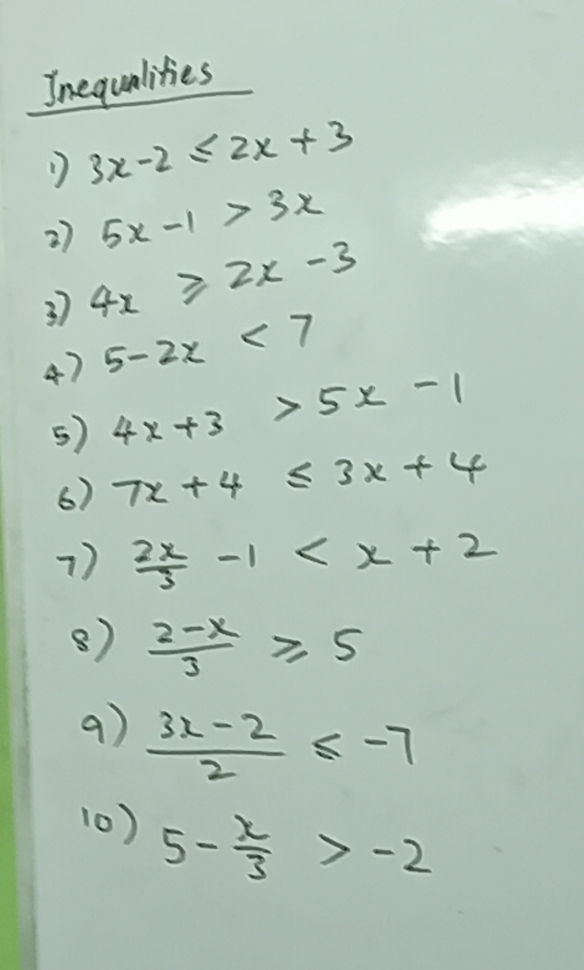 Inequalities
1) 3x-2 ≤ 2x + 3
2) 5x -1 > 3x
3) 4x ⩾ 2x -3
4) 5-2x < 7
5) 4x+3 > 5x -1
6) 7x +4 ≤ 3x + 4
7) 2x/3 -1 < x + 2
8) 2-x/3 ⩾ 5
9) 3x-2/2 ⩽ -7
10) 5- x/3 > -2